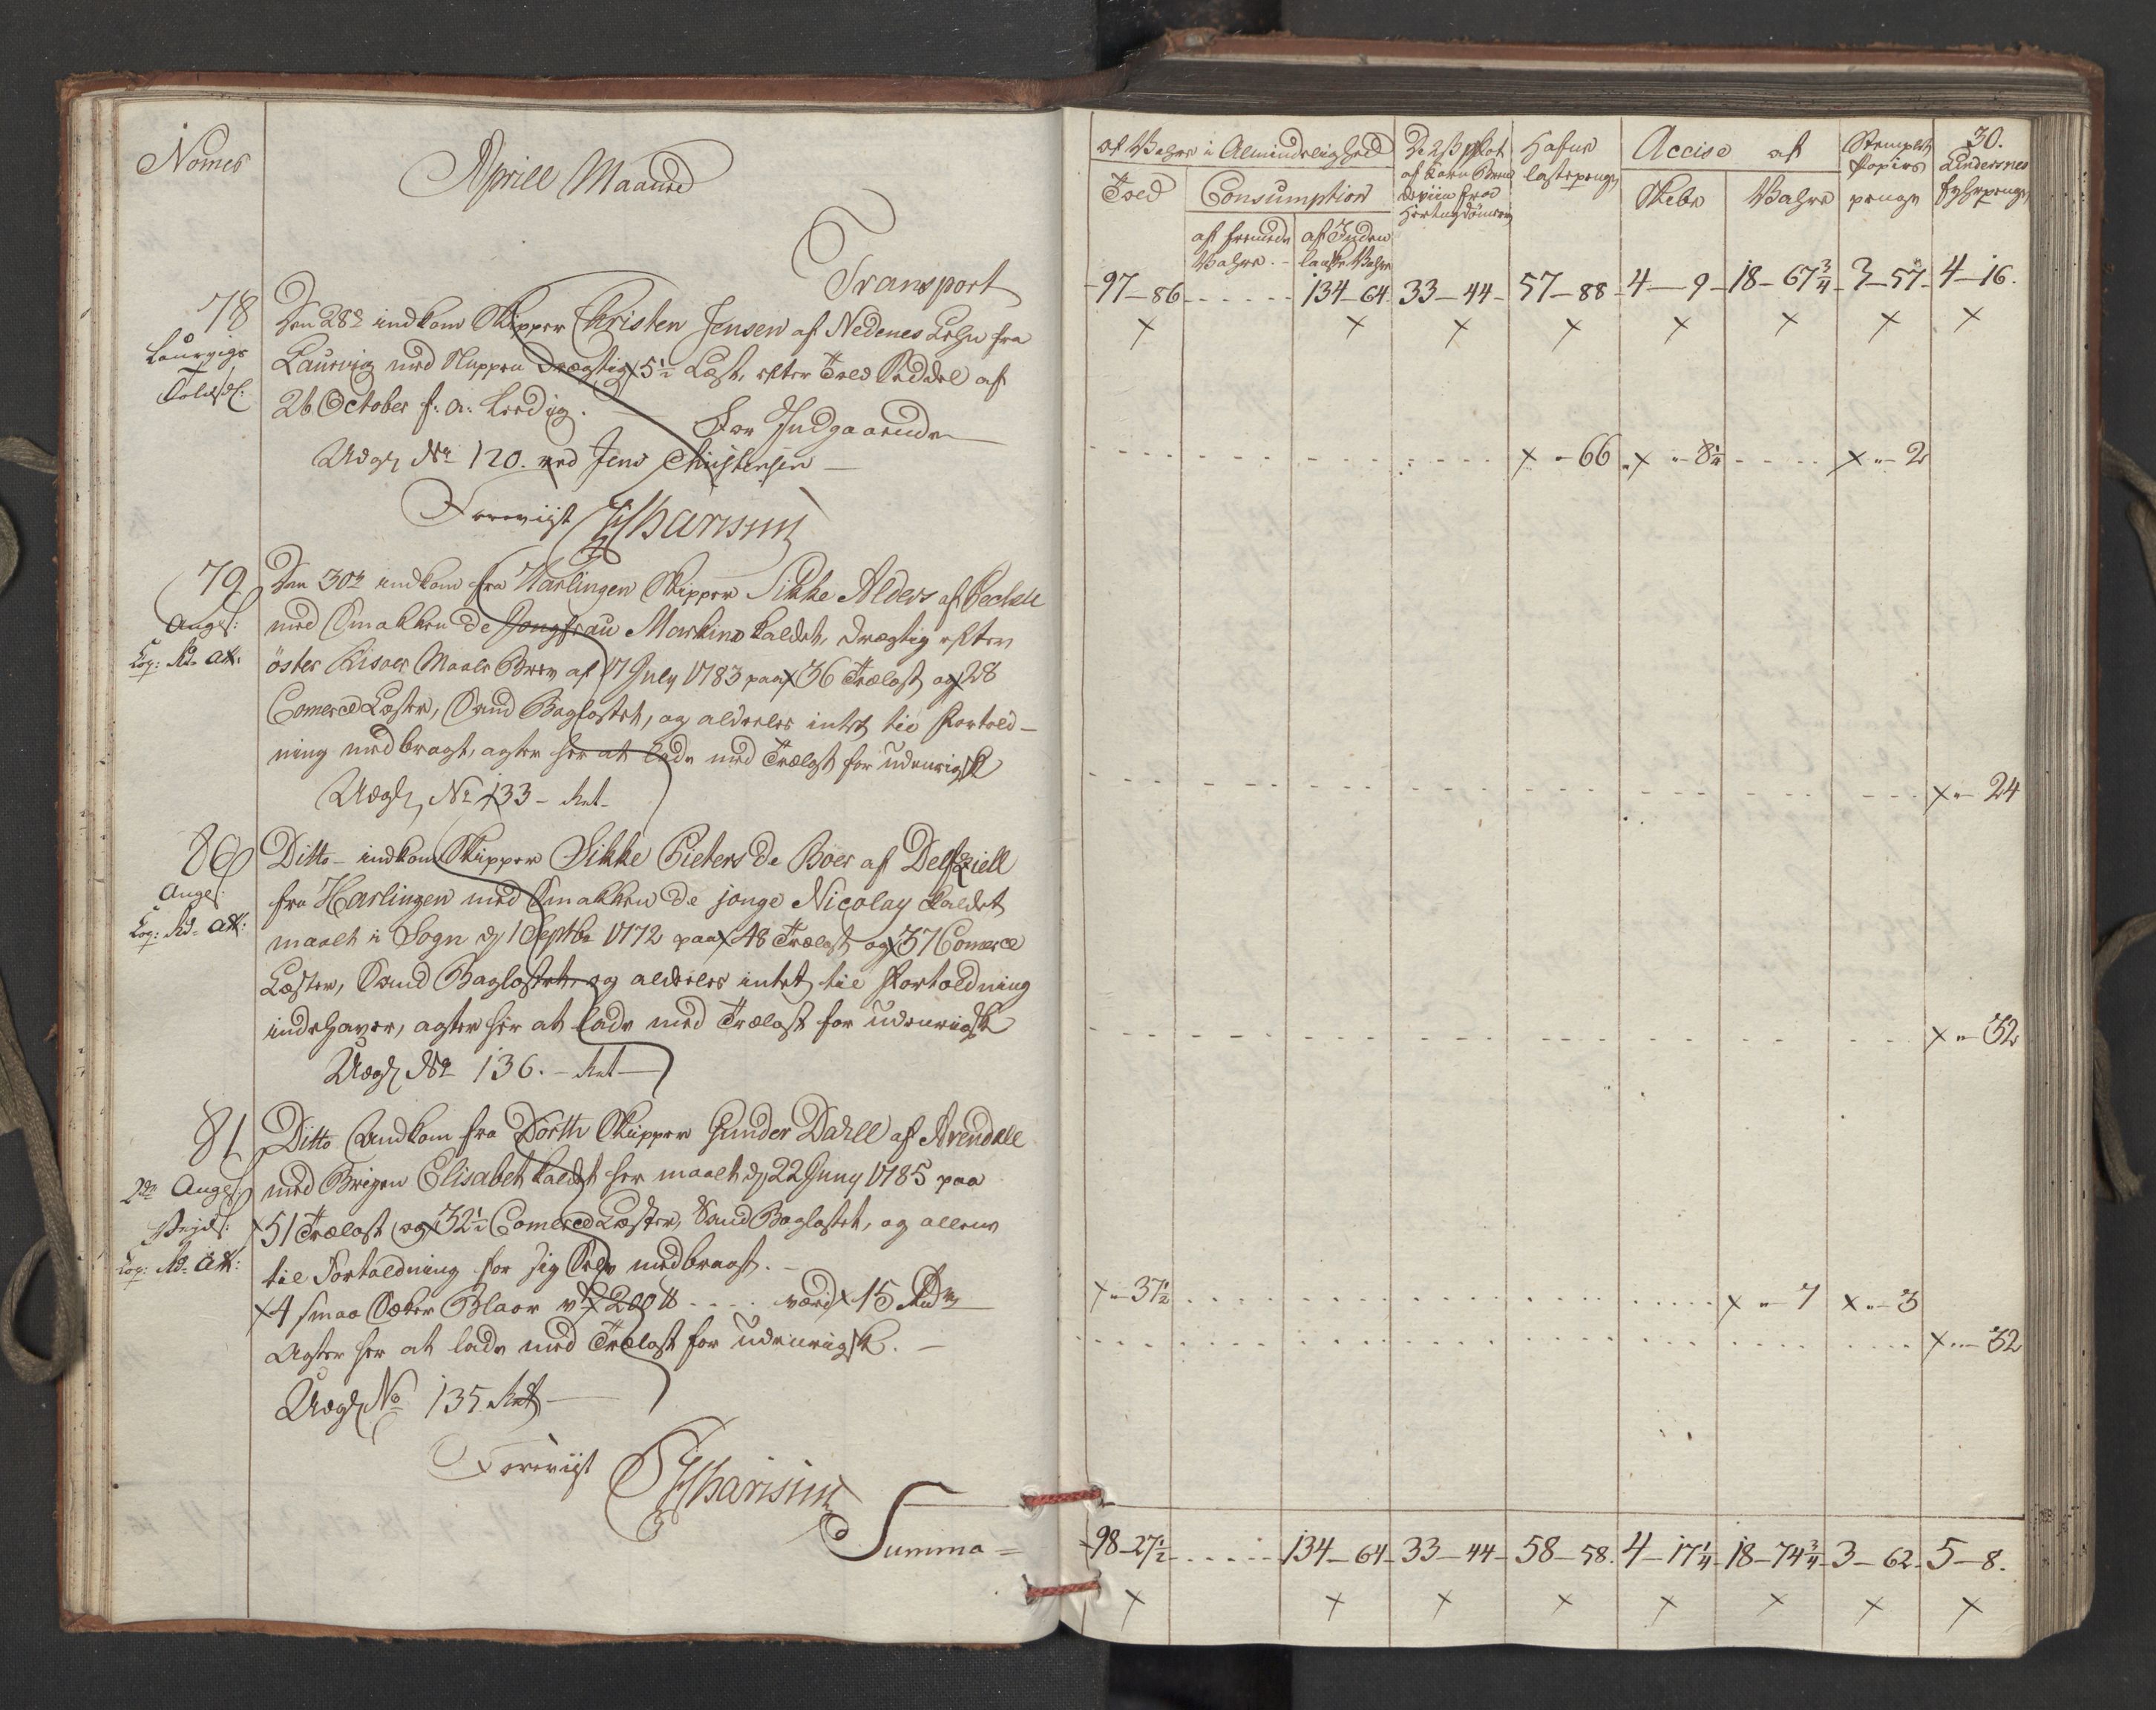 Nomer
Aprill Maaned
Transport
78
Laurvigs
Toldsl:
Den 28de indkom Skipper Christen Jensen af Nedenes Lehn fra
Laurvig med Sluppen drægtig 5½ Læst, efter Told Seddel af
26 October f: a: Leedig.
For Indgaaende
Udg: No 120. ved Jens Christensen
Foreviist
79
Angl:
Den 30te indkom fra Harlingen Skipper Sikke Alders af Peckell
med Smakken de Jongfrau Markina kaldet, drægtig efter
öster Riisöers Maale Brev af 17 July 1783 paa 36 Trælast og 28
Comerce Læster, Sand Baglastet, og aldeeles intet til Fortold-
ning medbragt, agter her at lade med Trælast for udenrigsk
Udg: No 133 -
80
Angl:
Ditto - indkom Skipper Sikke Pieters de Boer af Delfziell
fra Harlingen med Smakken de jonge Nicolay kaldet
maalt i Sogn d: 1 Septbr 1772 paa 48 Trælast og 37 Comerce
Læster, Sand Baglastet, og aldeeles intet til Fortoldning
indehaver, agter her at lade med Trælast for udenrigsk
Udg: No 136. -
81
2de Angl:
Ditto Indkom fra Dorth Skipper Gunder Dahll af Arendall
med Brigen Elisabet kaldet her maalt d: 22 Juny 1785 paa
51 Trælast og 32½ Comerce Læster, Sand Baglastet, og alleene
til Fortoldning for sig Selv medbragt.
4 smaa Sække Blaar v: 200 ℔ . . . . værd 15 Rdr
Agter her at lade med Trælast for udenrigsk. -
Udg: No 135
Foreviist
Summa =
30.
af Vahre i Almindelighed
Told
Consumption
af fremede Vahre. -
af Inden landske Vahre
Hertugdömmerne
Hafne lastepenge
Accise af
Skibe
Vahre
Stemplet Papiirs penge
Lindersnes fyhrpenge
97-86 - - - - - - 134-64. 33-44- 57-88- 4-9- 18-67¾- 3-57- 4-16.
x x x x x x x x
x - 66 x " - 8¼ - - - - x " - 2
x " - 24
x " - 32
x " - 37½ x " - 7 x " - 3
x " - 32
98-27½ . . . . . 134-64- 33-44- 58-58. 4-17¼- 18-74¾- 3-62- 5-8.
x x x x x x x x